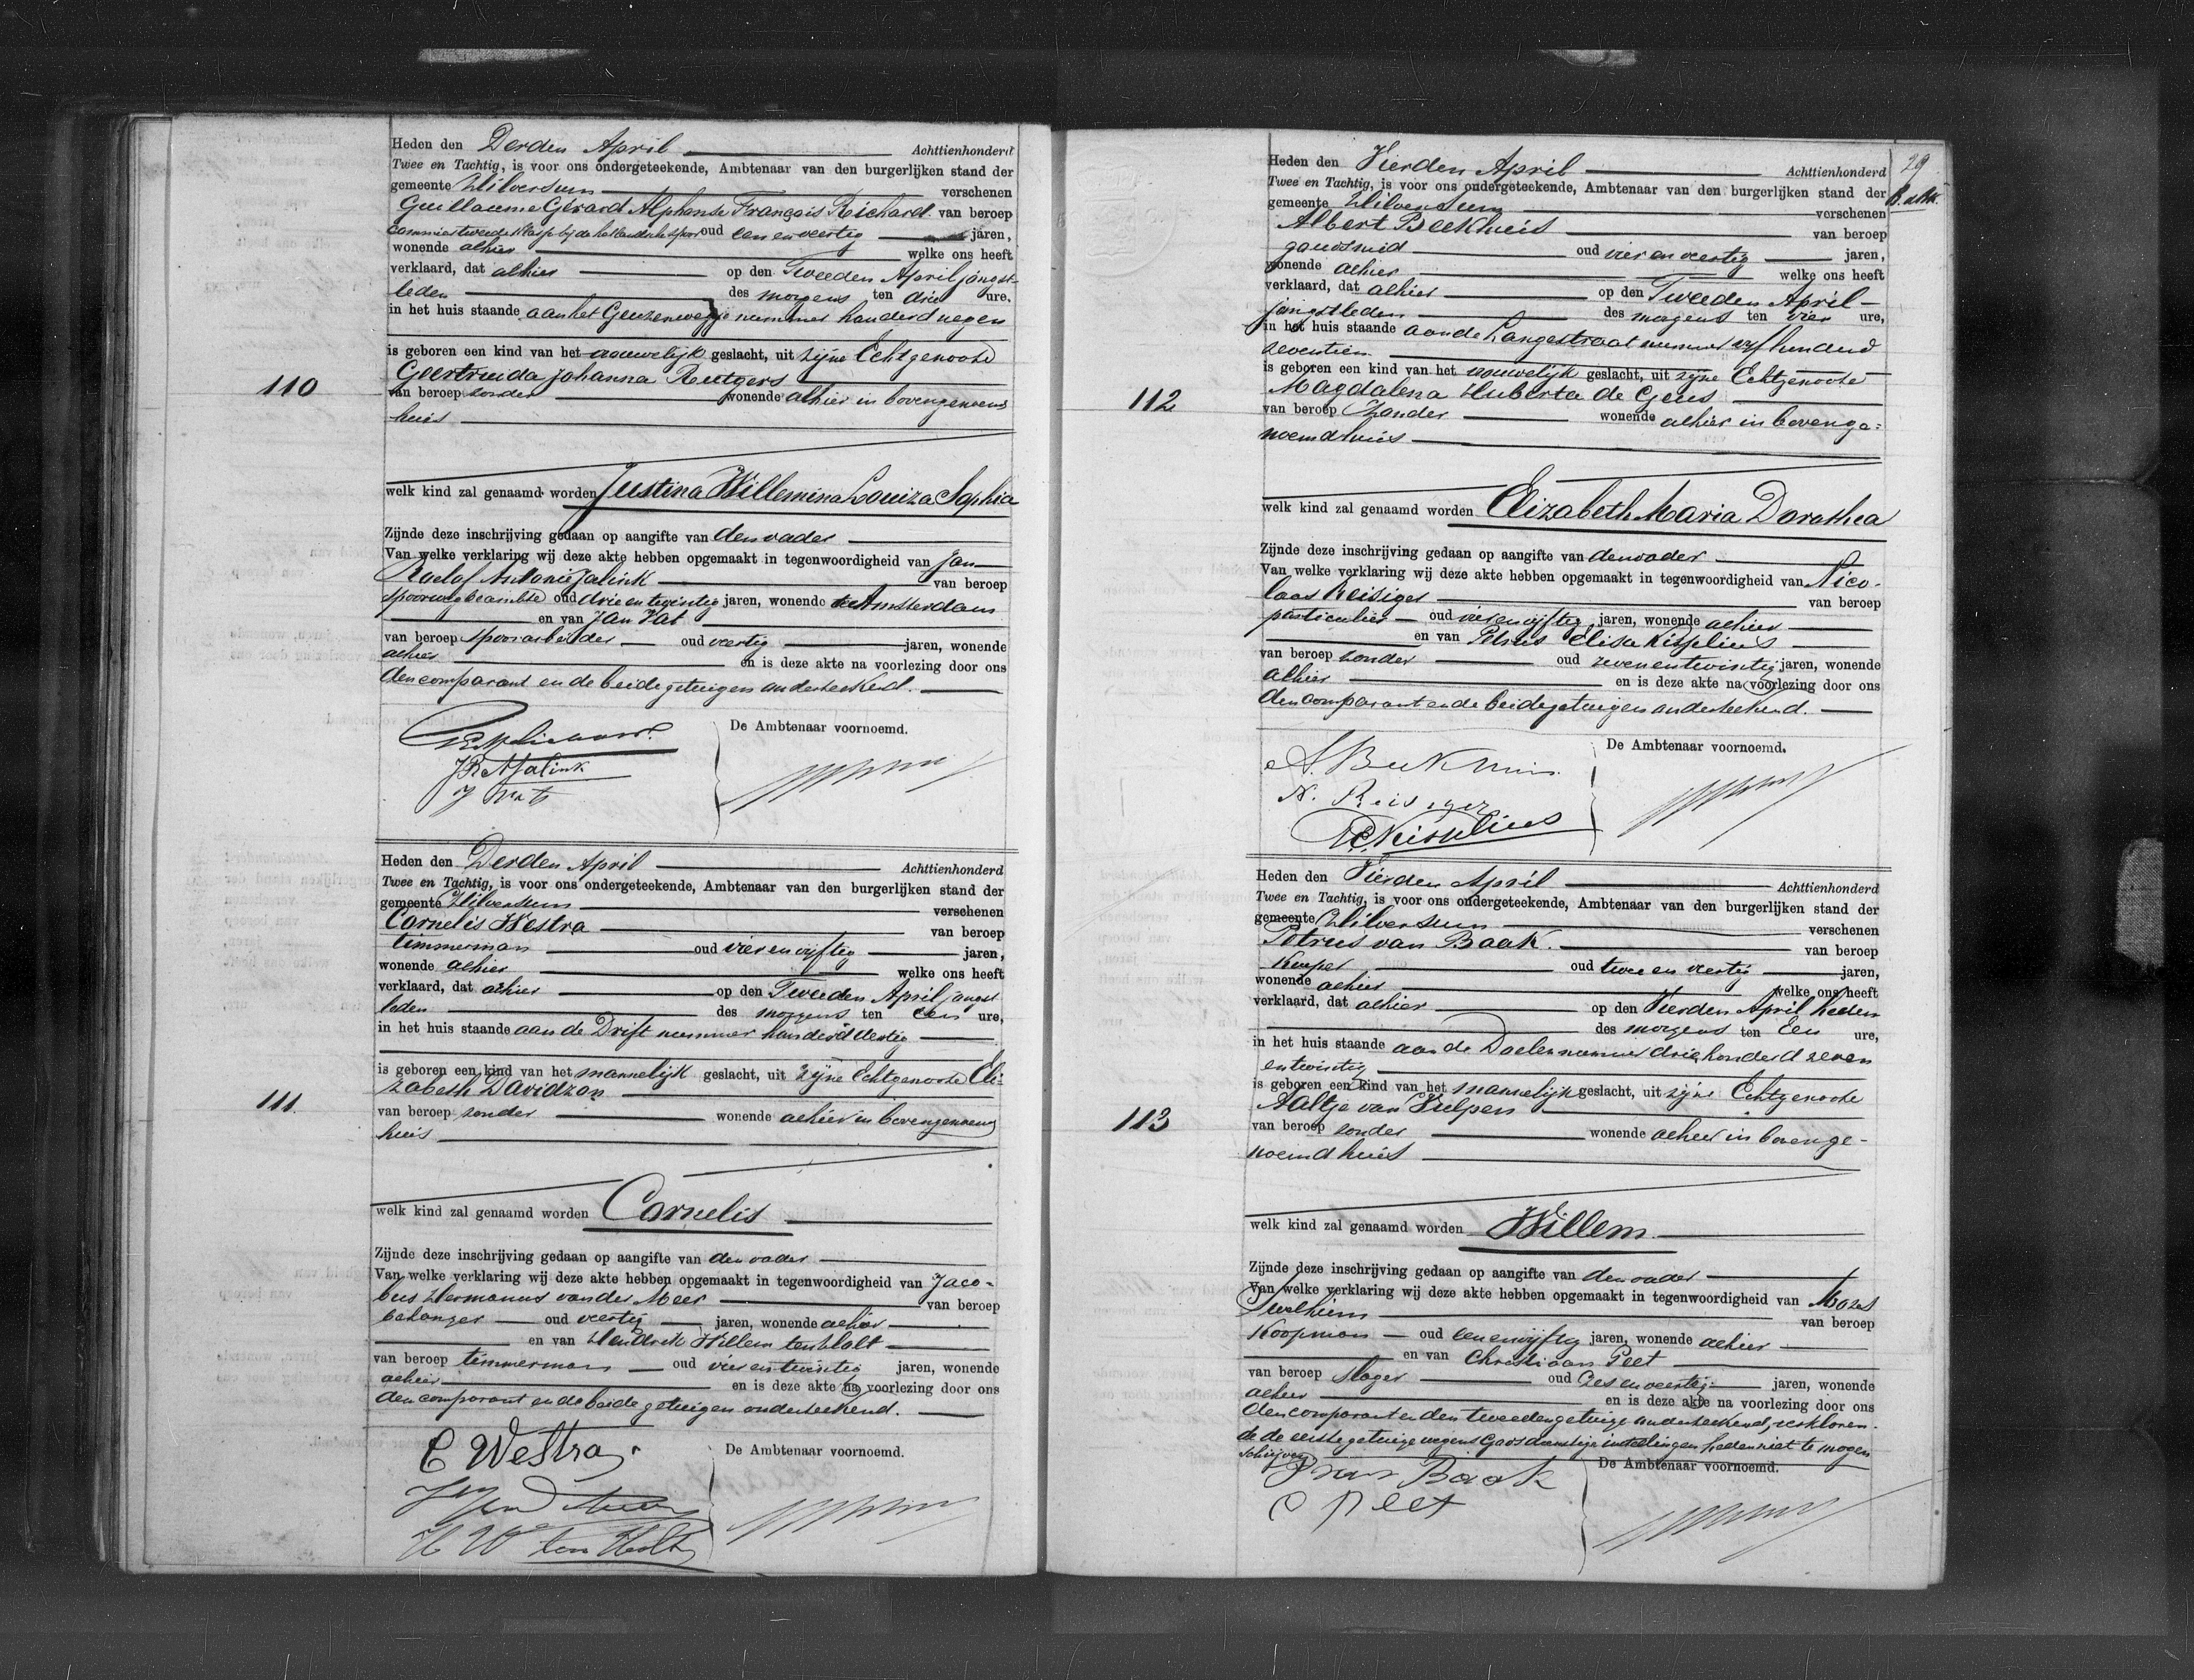 Heden den Derden April Achttienhonderd
Twee en Tachtig, is voor ons ondergeteekende, Ambtenaar van den burgerlijken stand der
gemeente Hilversum verschenen
Guillaume Gérard Alphonse François Richard van beroep
commies tweede klasse bij de hollandsche spoor oud een en veertig jaren,
wonende alhier welke ons heeft
verklaard, dat alhier op den Tweeden April jongst-
leden des morgens ten drie ure,
in het huis staande aan het Geuzenwegje nummer honderd negen
is geboren een kind van het vrouwelijk geslacht, uit zijne Echtgenoote
110
Geertruida Johanna Rutgers
van beroep zonder wonende alhier in bovengenoemd
huis
welk kind zal genaamd worden Justina Willemina Louiza Sophia
Zijnde deze inschrijving gedaan op aangifte van den vader
Van welke verklaring wij deze akte hebben opgemaakt in tegenwoordigheid van Jan
Roelof Antonie Jalink van beroep
spoorwegbeambte oud drie en twintig jaren, wonende te Amsterdam
en van Jan Vat
van beroep spoorarbeider oud veertig jaren, wonende
alhier en is deze akte na voorlezing door ons
den comparant en de beide getuigen onderteekend.
De Ambtenaar voornoemd.
JRA Jalink
Heden den Derden April Achttienhonderd
Twee en Tachtig, is voor ons ondergeteekende, Ambtenaar van den burgerlijken stand der
gemeente Hilversum verschenen
Cornelis Westra van beroep
timmerman oud vier en vijftig jaren,
wonende alhier welke ons heeft
verklaard, dat alhier op den Tweeden April jongst
leden des morgens ten een ure,
in het huis staande aan de Drift nummer honderd dertig
is geboren een kind van het mannelijk geslacht, uit zijne Echtgenoote Eli-
111
zabeth Davidzon
van beroep zonder wonende alhier in bovengenoemd
huis
welk kind zal genaamd worden Cornelis
Zijnde deze inschrijving gedaan op aangifte van den vader
Van welke verklaring wij deze akte hebben opgemaakt in tegenwoordigheid van Jaco-
bus Hermanus van der Meer van beroep
behanger oud veertig jaren, wonende alhier
en van Hendrik Willem ten Holt
van beroep timmerman oud vier en twintig jaren, wonende
alhier en is deze akte na voorlezing door ons
den comparant en de beide getuigen onderteekend.
C Westra
De Ambtenaar voornoemd.
H W ten Holt
29
Heden den Vierden April Achttienhonderd
Twee en Tachtig, is voor ons ondergeteekende, Ambtenaar van den burgerlijken stand der
gemeente Hilversum verschenen
Albert Beekhuis van beroep
goudsmid oud vier en veertig jaren,
wonende alhier welke ons heeft
verklaard, dat alhier op den Tweeden April
jongstleden des morgens ten vier ure,
in het huis staande aan de Langestraat nummer vijfhonderd
zeventien
is geboren een kind van het vrouwelijk geslacht, uit zijne Echtgenoote
112
Magdalena Huberta de Geus
van beroep Zonder wonende alhier in bovenge-
noemd huis
welk kind zal genaamd worden Elizabeth Maria Dorothea
Zijnde deze inschrijving gedaan op aangifte van den vader
Van welke verklaring wij deze akte hebben opgemaakt in tegenwoordigheid van Nico-
laas Reisiger van beroep
particulier oud vier en vijftig jaren, wonende alhier
en van Petrus Elisa Kisselius
van beroep zonder oud zeven en twintig jaren, wonende
alhier en is deze akte na voorlezing door ons
den comparant en de beide getuigen onderteekend.
De Ambtenaar voornoemd.
A. Beekhuis
N. Reisiger
Heden den Vierden April Achttienhonderd
Twee en Tachtig, is voor ons ondergeteekende, Ambtenaar van den burgerlijken stand der
gemeente Hilversum verschenen
Petrus van Baak. van beroep
Kuiper oud twee en veertig jaren,
wonende alhier welke ons heeft
verklaard, dat alhier op den Vierden April heden
des morgens ten Een ure,
in het huis staande aan de Doelen nummer driehonderd zeven
en twintig
is geboren een kind van het mannelijk geslacht, uit zijne Echtgenoote
113
Aaltje van Vulpen
van beroep zonder wonende alhier in bovenge-
noemd huis
welk kind zal genaamd worden Willem
Zijnde deze inschrijving gedaan op aangifte van den vader
Van welke verklaring wij deze akte hebben opgemaakt in tegenwoordigheid van Mozes
van beroep
Koopman oud een en vijftig jaren, wonende alhier
en van Christiaan Peet
van beroep slager oud zes en veertig jaren, wonende
alhier en is deze akte na voorlezing door ons
den comparant en den tweeden getuige onderteekend, verklaren-
de de eerste getuige wegens Godsdienstige instellingen heden niet te mogen
schrijven
De Ambtenaar voornoemd.
P van Baak
C Peet